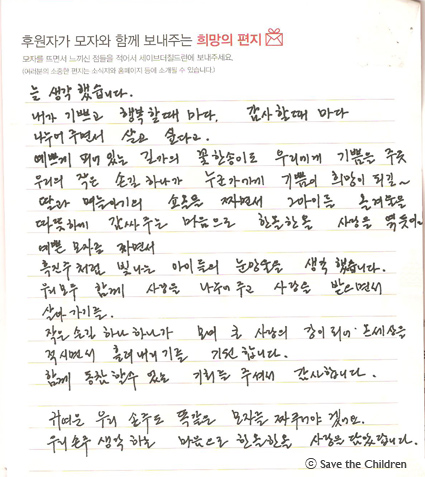 후원자가 모자와 함께 보내주는 희망의 편지
모자를 뜨면서 느끼신 점들을 적어서 세이브더칠드런에 보내주세요.
(여러분의 소중한 편지는 소식지와 홈페이지 등에 소개될 수 있습니다.)
늘 생각 했습니다.
내가 기쁘고 행복할때 마다, 감사할때 마다
나누어 주면서 살고 싶다고.
예쁘게 피어 있는 길가의 꽃한송이도 우리에게 기쁨을 주듯
우리의 작은 손길 하나가 누군가에게 기쁨의 희망이 되길~
딸과 며늘아기의 소품을 짜면서 그마이들
따뜻하게 감싸주는 마음으로 한올한올 사랑을 엮듯이~
예쁜 모자를 짜면서
흑진주 처럼 빛나는 아이들의 눈망울을 생각 했습니다.
우리모두 함께 사랑을 나누어 주고 사랑을 받으면서
살아 가기를.
작은 손길 하나 하나가 모여 큰 사랑의 강이 되어 온세상을
적시면서 흘러 내리기를 기원 합니다.
함께 동참 할수 있는 기회를 주셔서 감사합니다.
귀여운 우리 손주도 똑같은 모자를 짜 주어야 겠어요.
우리손주 생각 하는 마음으로 한올한올 사랑을 담았답니다.
© Save the Children